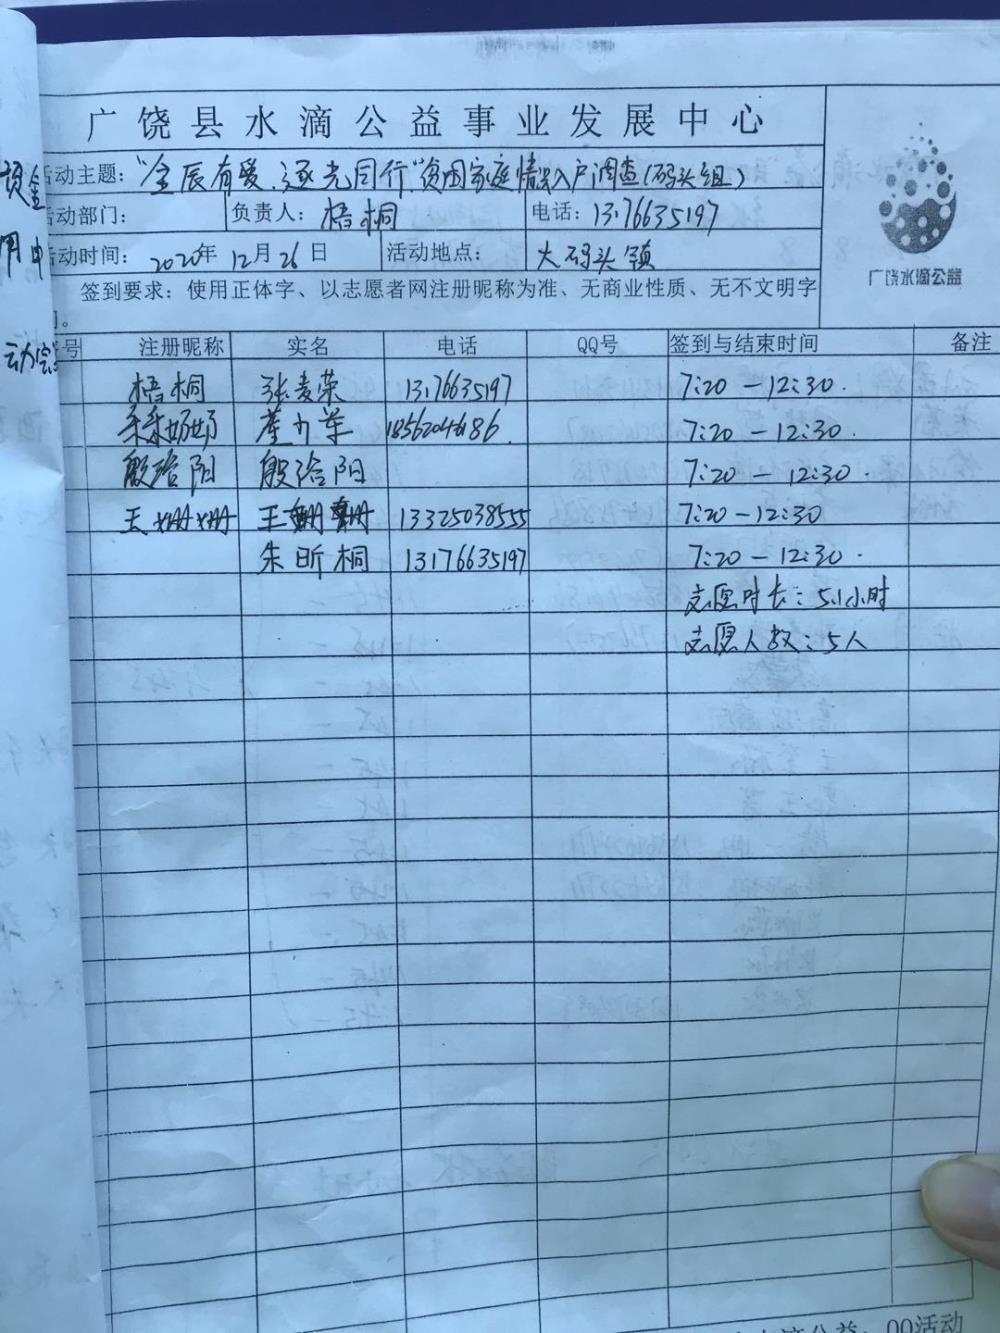 广饶县水滴公益事业发展中心
活动主题："金辰有爱.逐光同行"贫困家庭情况入户调查(码头组)
活动部门： 负责人：梧桐 电话：13176635197
活动时间：2020年12月26日 活动地点：大码头镇
签到要求：使用正体字、以志愿者网注册昵称为准、无商业性质、无不文明字
。
号 注册昵称 实名 电话 QQ号 签到与结束时间 备注
梧桐 张麦荣 13176635197 7:20 — 12:30.
奶奶 7:20 — 12:30.
殷浩阳 殷浩阳 7:20 — 12:30
王姗姗 王 13325038555 7:20 — 12:30
朱昕桐 13176635197 7:20 — 12:30.
志愿时长：51小时
志愿人数：5人
广饶水滴公益
资金
用申
QQ活动